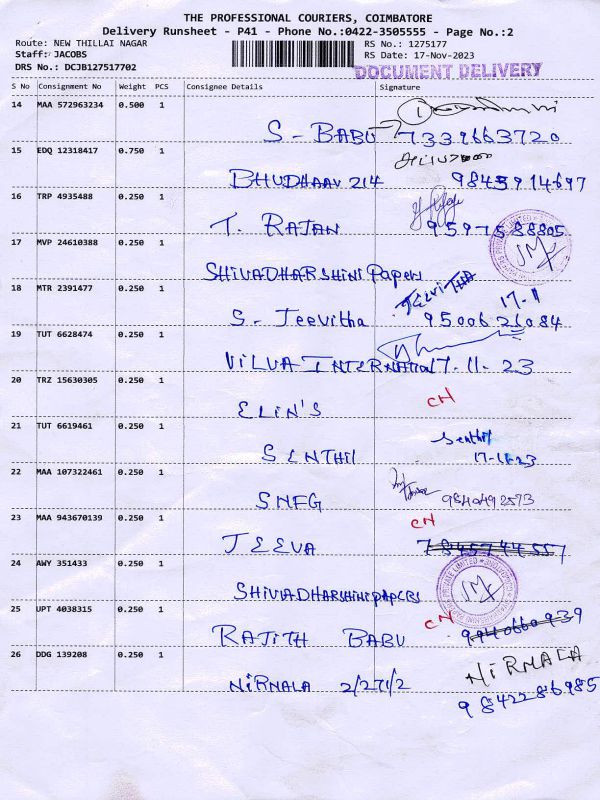 THE PROFESSIONAL COURIERS, COIMBATORE
Delivery Runsheet - P41 - Phone No.:0422-3505555 - Page No.:2
Route: NEW THILLAI NAGAR
RS No.: 1275177
Staff: JACOBS
RS Date: 17-Nov-2023
DRS No.: DCJB127517702
DOCUMENT DELIVERY
S No Consignment No Weight PCS Consignee Details Signature
14 MAA 572963234 0.500 1
S - BABU 7339663720
15 EDQ 12318417 0.750 1
BHUDHAAV 214 9845914697
16 TRP 4935488 0.250 1
T. RAJAN 9597588805
17 MVP 24610388 0.250 1
SHIVADHARSHINI Papers
18 MTR 2391477 0.250 1 JEEVITHA 17-11
S - Jeevitha 9500626084
19 TUT 6628474 0.250 1
VILVA INTERNATION 17-11-23
20 TRZ 15630305 0.250 1 CN
ELIN'S
21 TUT 6619461 0.250 1 Senthil
SENTHIL 17-11-23
22 MAA 107322461 0.250 1
SNFG 9840492573
23 MAA 943670139 0.250 1 CN
JEEVA 7845744557
24 AWY 351433 0.250 1
SHIVADHARSHINI PAPERS
25 UPT 4038315 0.250 1 CN
RAJITH BABU 9940660939
26 DDG 139208 0.250 1 NIRNALA
NIRNALA 2/271/2 9842286985